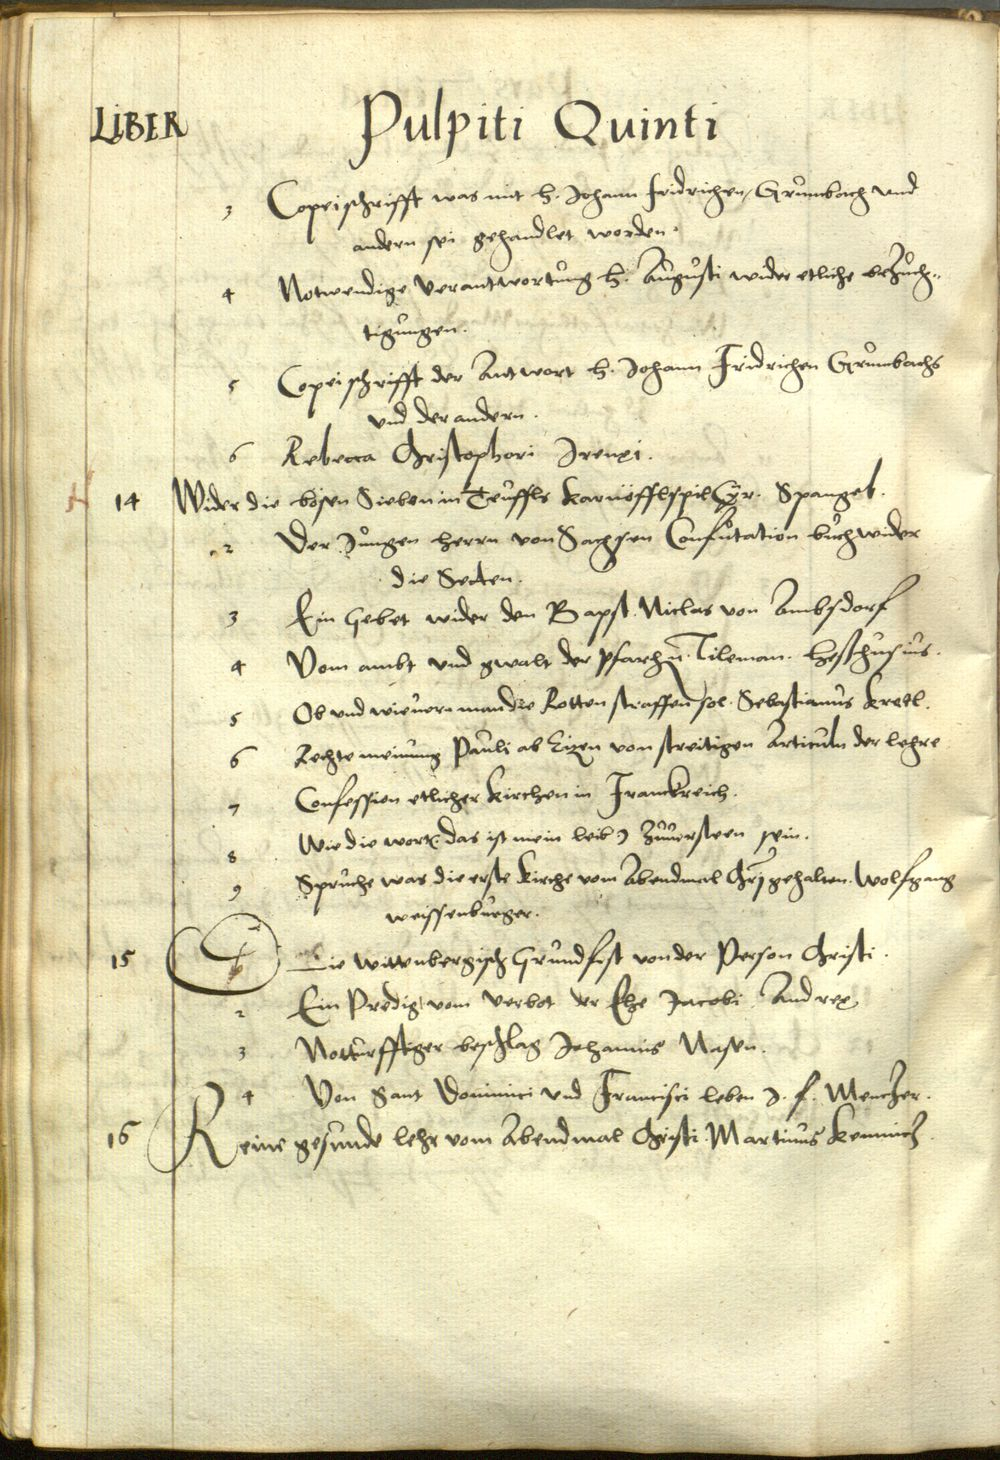 LIBER Pulpiti Quinti
3 Copeischrifft was mit H. Johann Fridrichen, Grumbach und
andern sei gehandlet worden.
4 Notwendige Verantwortung H. Augusti wider etliche bezüch-
tigungen.
5 Copeischrifft der Antwort H. Johann Fridrichen Grumbachs
und der andern.
6 Rebecca Christophori Irenei.
14 Wider die bösen Sieben in Teuffls Karnöfflspil Cyr. Spangeb.
2 Der Jungen Herrn von Sachsen Confutation buch wider
die Secten.
3 Ein Gebet wider den Bapst. Niclas von Ambsdorf
4 Vom ambt und gwalt der pfarhn. Tileman. Heshusius.
5 Ob und wie man die Rotten straffen sol. Sebastianus Krell.
6 Rechte meinung Pauli ab Eizen von streitigen Articuln der lehre
7 Confession etlicher Kirchen in Franckreich.
8 Wie die wort, das ist mein leib zuuersteen sein.
9 Spruche was die erste Kirche vom Abendmal Chri gehalten. Wolfgang
weissenburger.
15 Die Wittenbergisch Grundfest von der Person Christi.
2 Ein Predig vom verbot der Ehe Jacobi Andreæ
3 Notturfftiger beschlag Johannis Nasen.
4 Von Sant Dominici und Francisci leben J. f. Mentzer.
16 Reine gesunde lehr vom Abendmal Christi. Martinus Kemnich